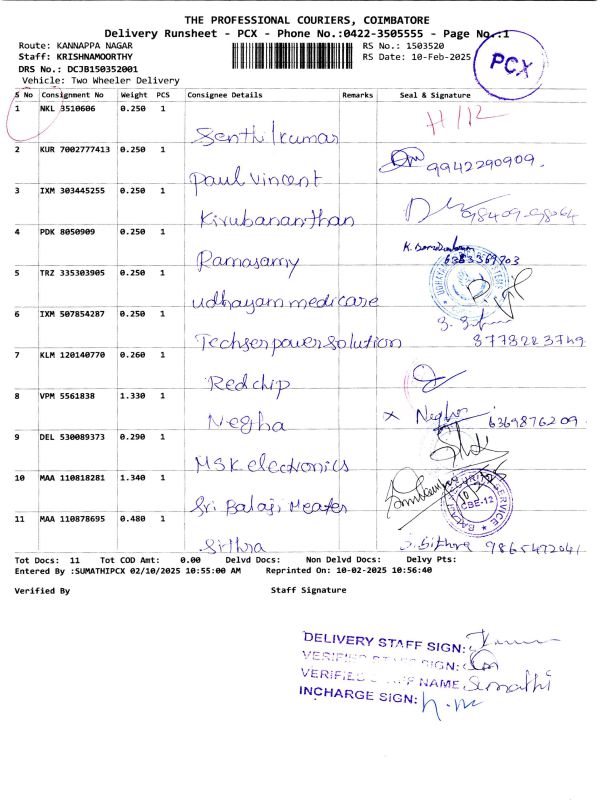 THE PROFESSIONAL COURIERS, COIMBATORE
Delivery Runsheet - PCX - Phone No.:0422-3505555 - Page No.:1
Route: KANNAPPA NAGAR RS No.: 1503520
Staff: KRISHNAMOORTHY RS Date: 10-Feb-2025
DRS No.: DCJB150352001
Vehicle: Two Wheeler Delivery
PCX
S No Consignment No Weight PCS Consignee Details Remarks Seal & Signature
1 NKL 3510606 0.250 1 Senthilkumar H/12
2 KUR 7002777413 0.250 1 Paul Vincent 9942290909.
3 IXM 303445255 0.250 1 Kirubananthan 98409-98064
4 PDK 8050909 0.250 1 Ramasamy 6383369703
5 TRZ 335303905 0.250 1 udhayam medicare
6 IXM 507854287 0.250 1 Techser power solution 8778223749
7 KLM 120140770 0.260 1 Redchip
8 VPM 5561838 1.330 1 Negha x Negha 6369876209
9 DEL 530089373 0.290 1 MSK electronics
10 MAA 110818281 1.340 1 Sri Balaji CBE-12
11 MAA 110878695 0.480 1 Sithra S. Sithra 9865472041
Tot Docs: 11 Tot COD Amt: 0.00 Delvd Docs: Non Delvd Docs: Delvy Pts:
Entered By :SUMATHIPCX 02/10/2025 10:55:00 AM Reprinted On: 10-02-2025 10:56:40
Verified By Staff Signature
DELIVERY STAFF SIGN:
VERIFIED STAFF SIGN:
VERIFIED STAFF NAME. Sumathi
INCHARGE SIGN: